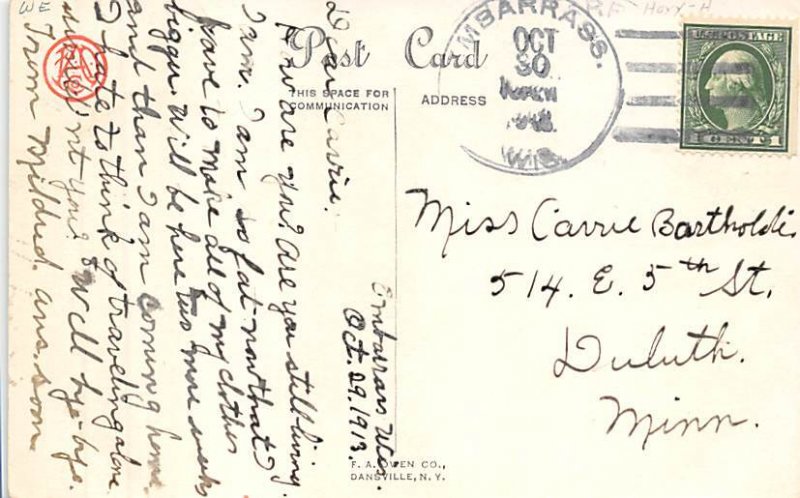 WE
Post Card
THIS SPACE FOR
COMMUNICATION
ADDRESS
EMBARRASS.
OCT
30
WIS.
U.S. POSTAGE
1 CENT 1
Embarrass Wis.
Oct. 29. 1913.
Dear Carrie.
How are you? are you still living.
I am. I am so fat now that I
have to make all of my clothes
bigger. Will be here two more weeks
and than I am coming home.
I hate to think of traveling alone
would'nt you? Well bye-bye.
From Mildred. ans. soon
Miss Carrie Bartholdi
514. E. 5th St,
Duluth.
Minn.
F. A. OWEN CO.,
DANSVILLE, N. Y.